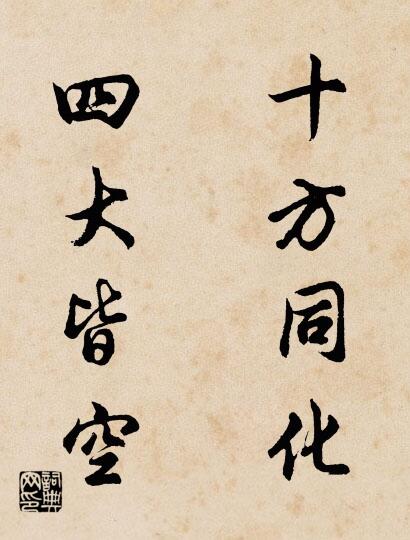 十方同化
四大皆空
詞典網印